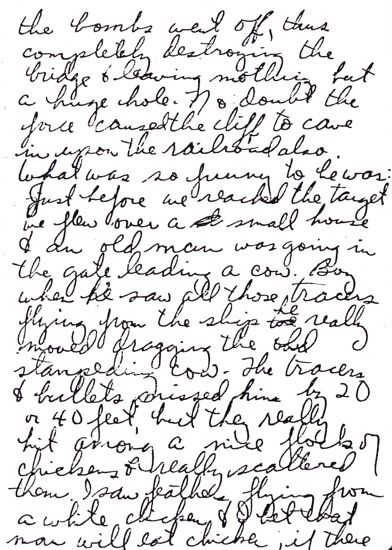 the bombs went off, thus
completely destroying the
bridge & leaving nothing but
a huge hole. No doubt the
force caused the cliff to cave
in upon the railroad also.
What was so funny to he was:
Just before we reached the target
we flew over a small house
& an old man was going in
the gate leading a cow. Boy
when he saw all those tracers
flying from the ship he really
moved dragging the old
stampeding cow. The tracers
& bullets missed him by 20
or 40 feet, but they really
hit among a nice flock of
chickens & really scattered
them. I saw feathers flying from
a white chicken & I bet that
man will eat chicken, if there